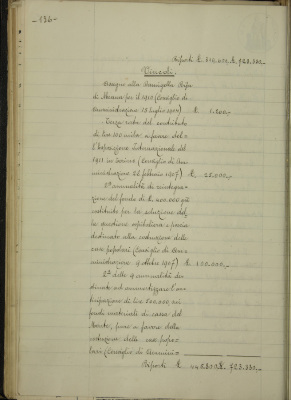 -136-
Riporti L. L. 723.330,-
Vincoli.
Assegno alla Famiglia
per il 1910 (Consiglio di
Amministrazione 18 luglio L. 1.200,-
Terza rata del contributo
di lire 100 mila a favore del-
l'Esposizione Internazionale del
1911 in Torino (Consiglio di Am-
ministrazione 26 febbraio 1907) L. 25.000,-
annualità di reintegra-
zione del fondo di L. 400.000 già
costituito per la soluzione del-
la questione ospitaliera e poscia
destinato alla costruzione delle
case popolari (Consiglio di Am-
ministrazione 9 1907) L. 100.000,-
2ª delle 9 annualità de-
stinate ad ammortizzare l'an-
ticipazione di lire 500.000 sui
fondi di cassa del
Monte, fatta a favore della
costruzione delle case popo-
lari (Consiglio di Ammini-
Riporti L. L. 723.330,-